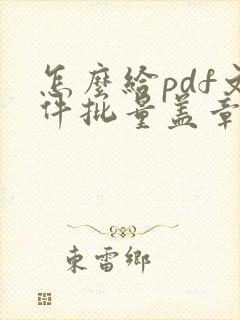 怎麼給pdf文
件批量盖章
東雷鄉